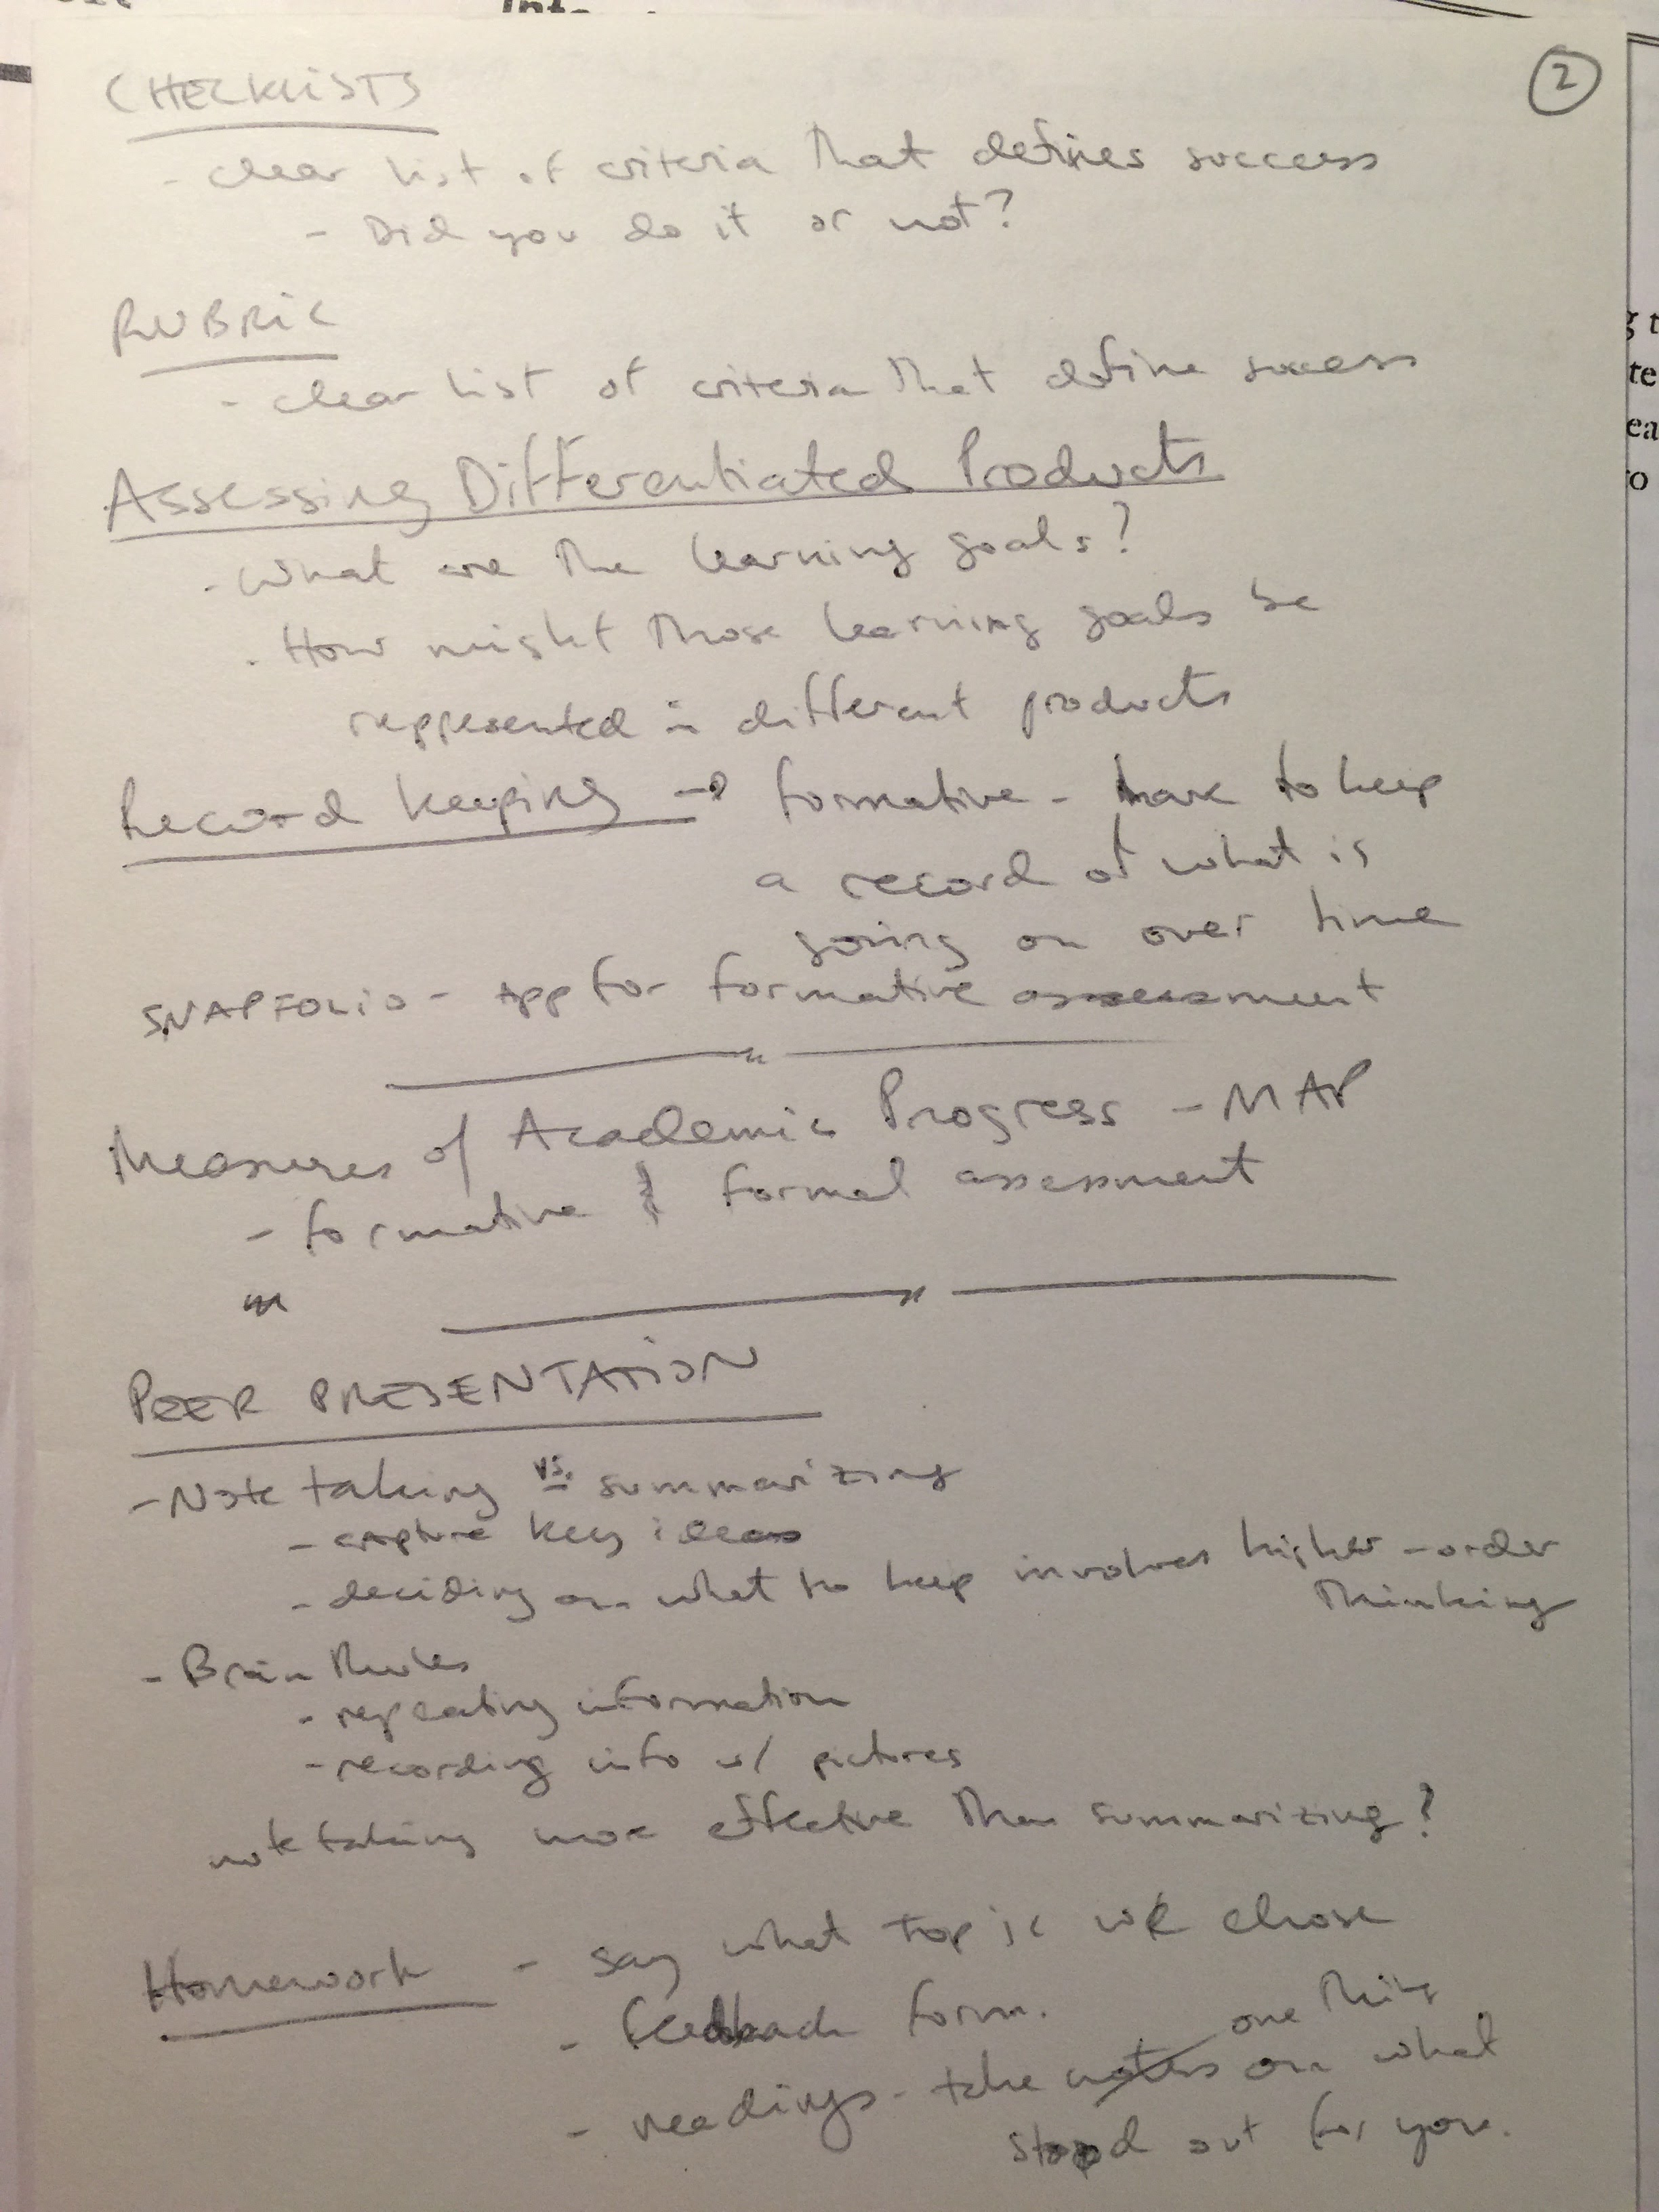 ②
CHECKLISTS
- clear list of criteria that defines success
- Did you do it or not?
RUBRIC
- clear list of criteria that define success
Assessing Differentiated Products
- What are the learning goals?
- How might those learning goals be
represented in different products
Record keeping → formative - have to keep
a record of what is
going on over time
SNAPFOLIO - App for formative assessment
Measures of Academic Progress - MAP
- formative & formal assessment
PEER PRESENTATION
- Note taking vs. summarizing
- capture key ideas
- deciding on what to keep involves higher-order
thinking
- Brain Rules
- repeating information
- recording info w/ pictures
note taking more effective than summarizing?
Homework - say what topic we chose
- feedback form.
one thing
- readings - take notes on what
stood out for you.